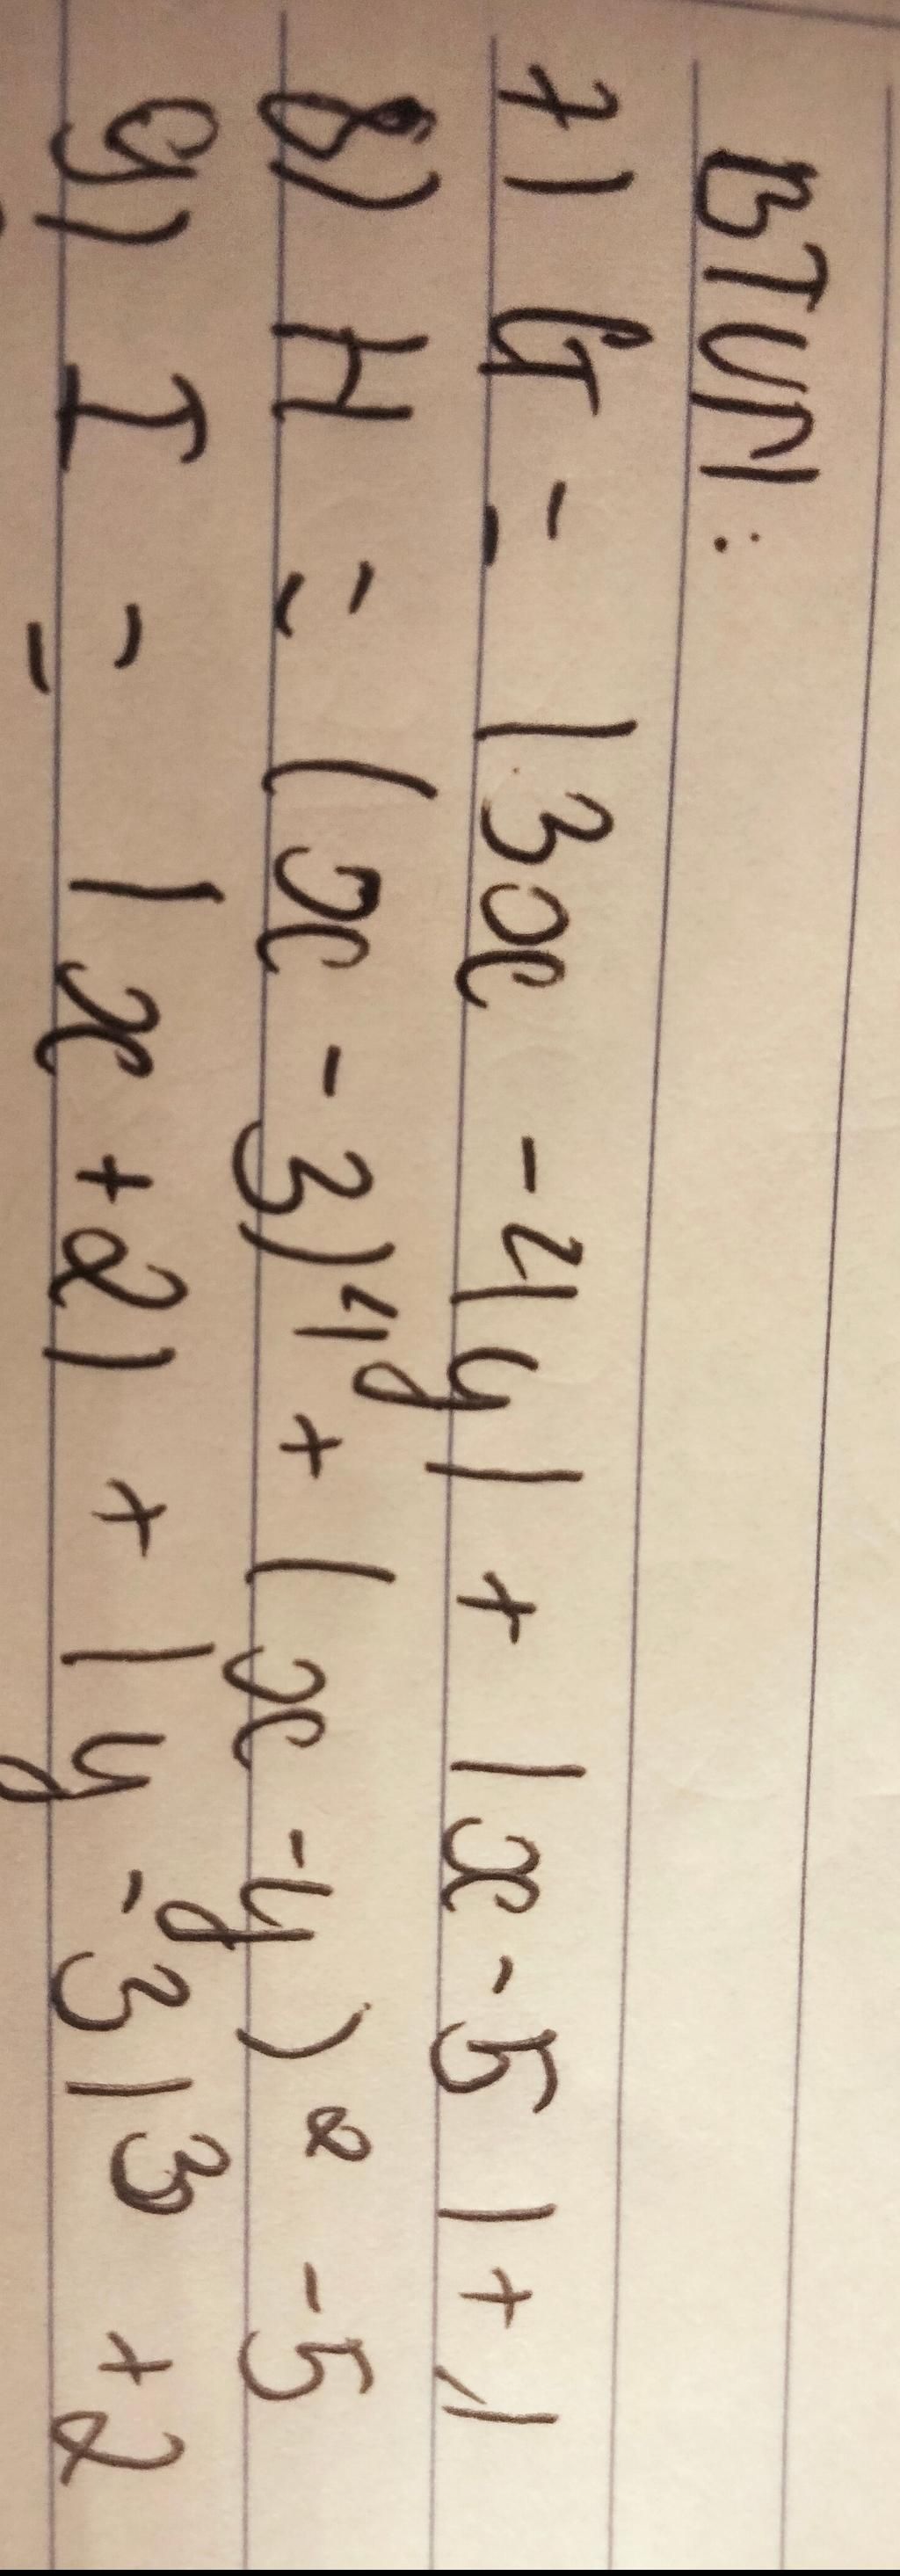 BTVN:
7) G = |3x - 4y| + |x - 5| + 1
8) H = (x - 3)⁴ + (x - y)² - 5
9) I = |x + 2| + |y - 3|³ + 2